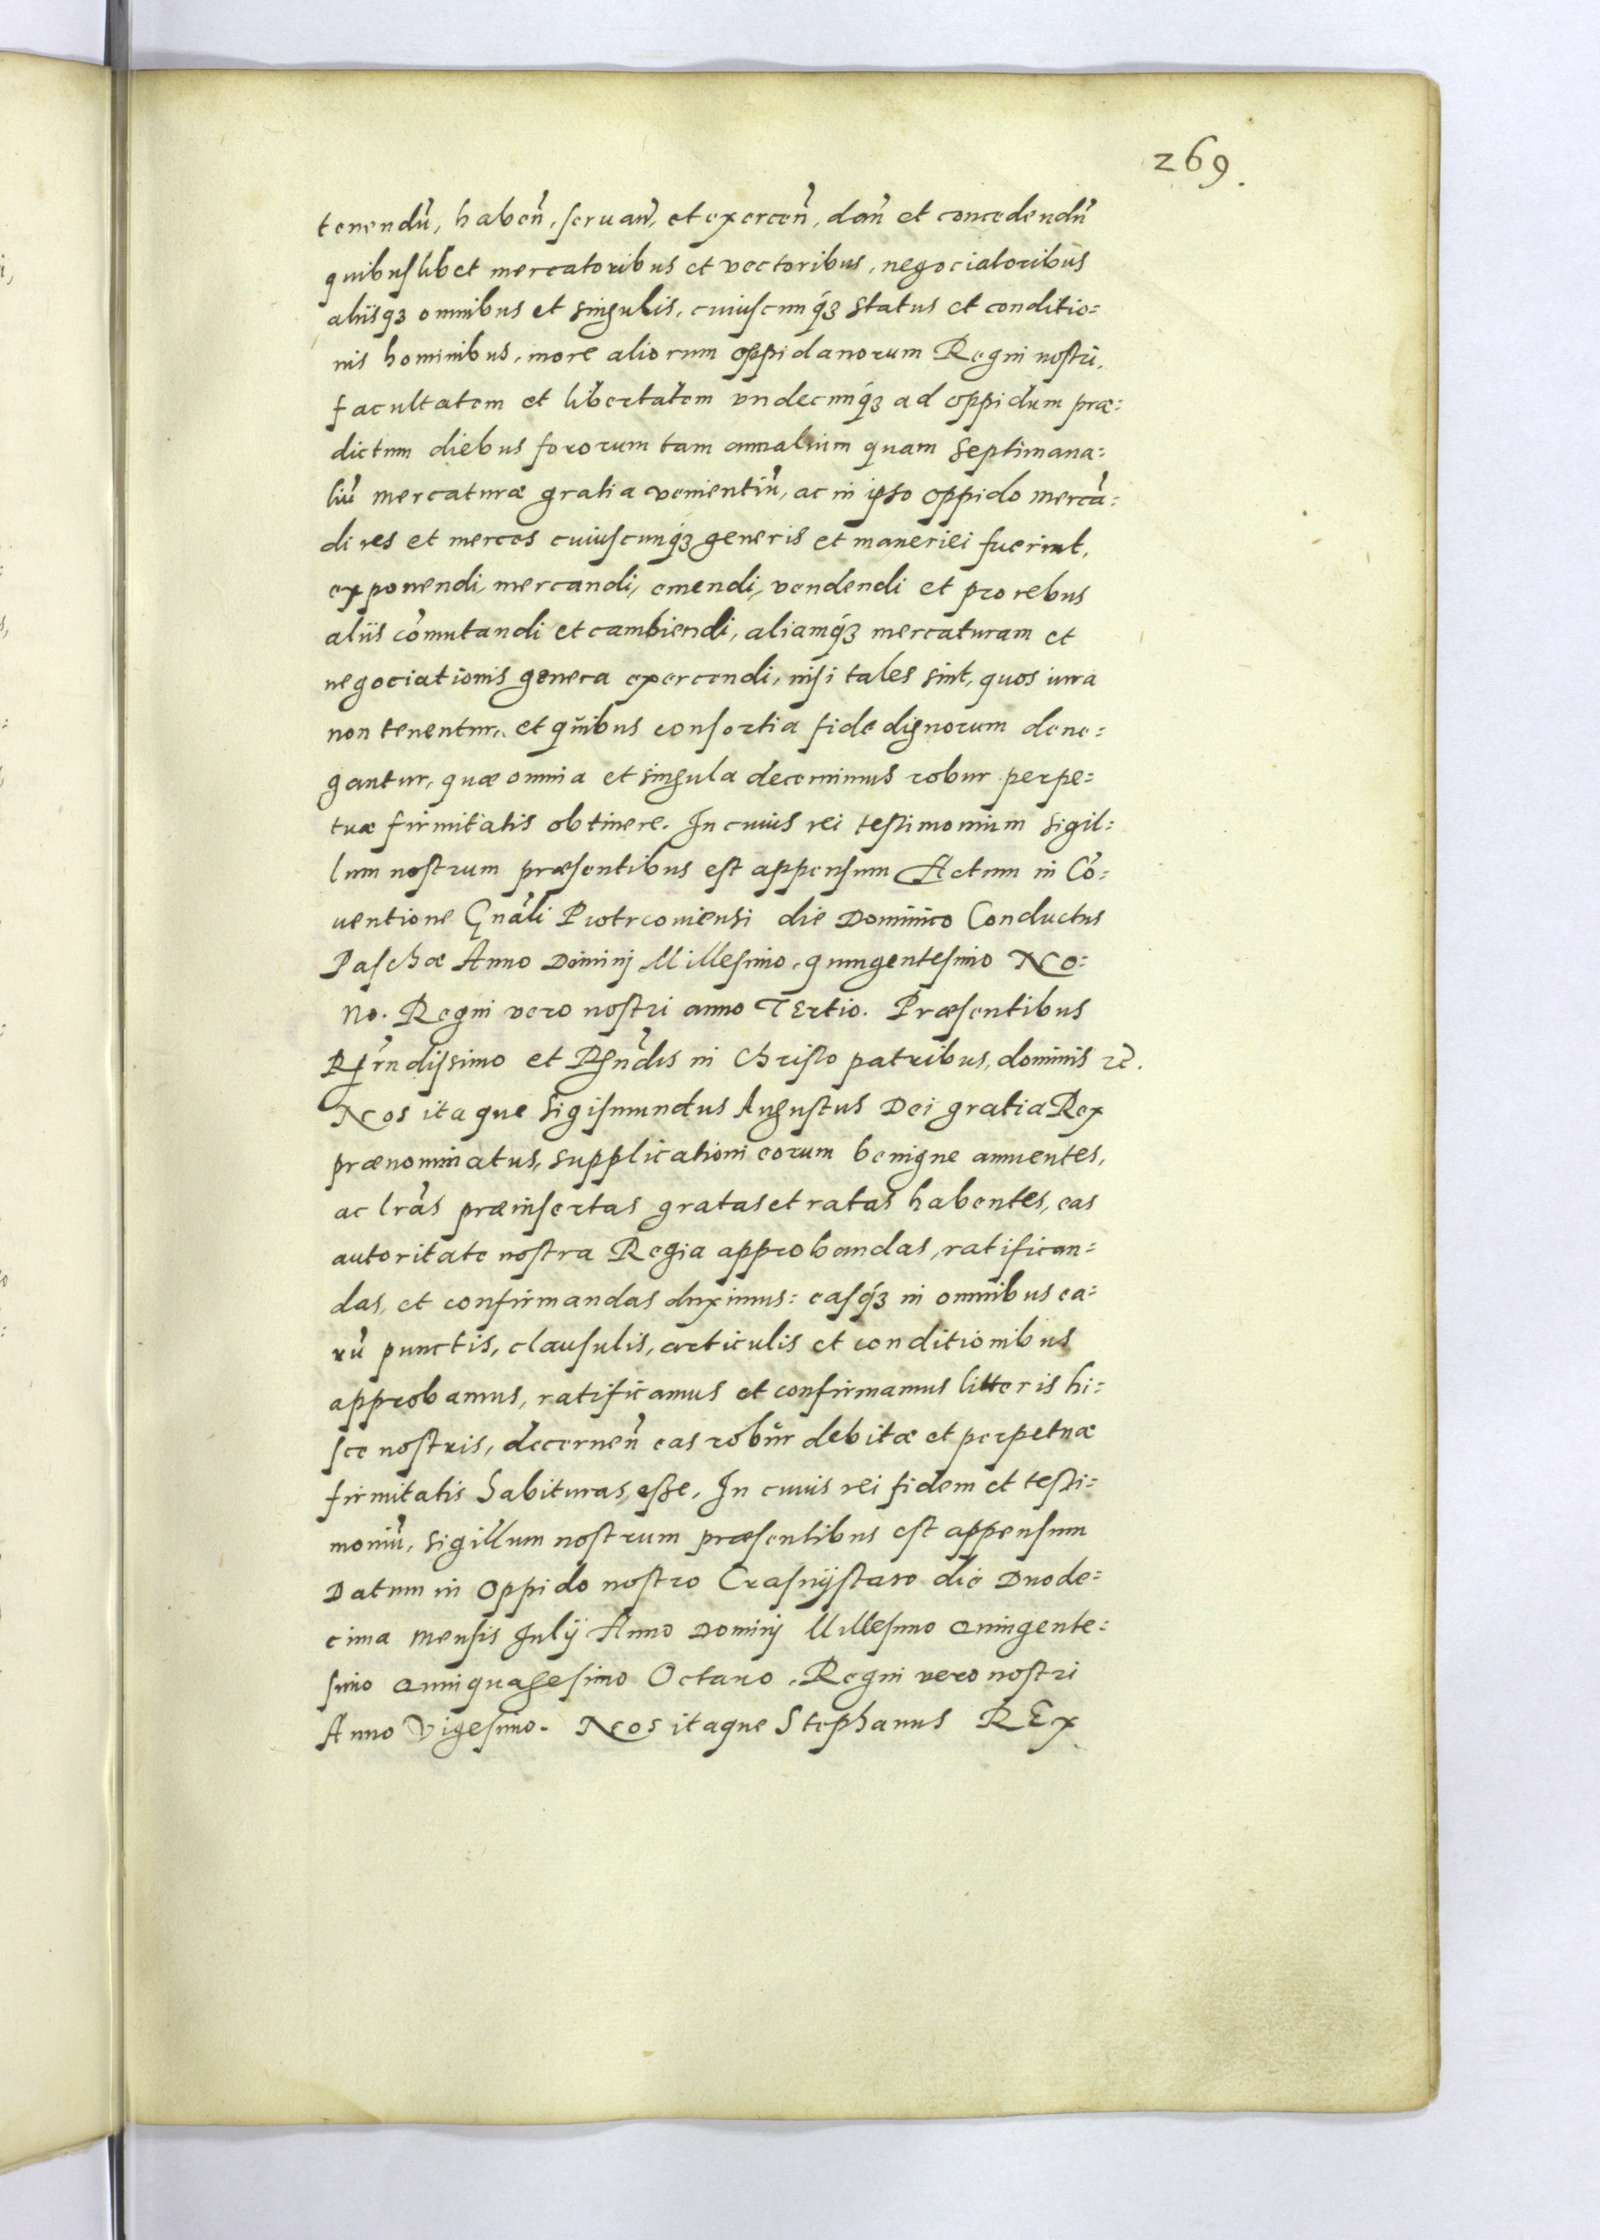 269.
tenendũ, habeñ, seruañ, et exerceñ, dañ et concedendũ
quibuslibet mercatoribus et vectoribus, negociatoribus
aliisq́ꝫ omnibus et singulis, cuiuscunq́ꝫ status et conditio=
nis hominibus, more aliorum oppidanorum Regni nostri,
facultatem et libertatem vndecunq́ꝫ ad oppidum præ=
dictum diebus fororum tam annalium quam septimana=
liũ mercaturæ gratia venientiũ, ac in ipso oppido mercã=
di res et merces cuiuscunq́ꝫ generis et maneriei fuerint,
exponendi, mercandi, emendi, vendendi et pro rebus
aliis cõmutandi et cambiendi, aliamq́ꝫ mercaturam et
negociationis genera exercendi, nisi tales sint, quos iura
non tenentur, et quibus consortia fide dignorum dene=
gantur, quæ omnia et singula decernimus robur perpe=
tuæ firmitatis obtinere. In cuius rei testimonium sigil=
lum nostrum præsentibus est appensum Actum in Cõ=
uentione Gnãli Piotrcouiensi die Dominico Conductus
Paschæ Anno Dominj Millesimo, quingentesimo No=
no. Regni vero nostri anno Tertio. Præsentibus
Rẽrndissimo et Rẽndis in Christo patribus, dominis ꝛc̃.
Nos itaque Sigismundus Augustus Dei gratia Rex
prænominatus, supplicationi eorum benigne annuentes,
ac lrãs præinsertas gratas et ratas habentes, eas
autoritate nostra Regia approbandas, ratifican=
das, et confirmandas duximus: easq́ꝫ in omnibus ea=
rũ punctis, clausulis, articulis et conditionibus
approbamus, ratificamus et confirmamus litteris hi=
sce nostris, decerneñ eas robur debitæ et perpetuæ
firmitatis habituras esse. In cuius rei fidem et testi=
moniũ, sigillum nostrum præsentibus est appensum
Datum in Oppido nostro Crasnijstaw die Duode=
cima mensis Julij Anno Dominj Millesimo Quingente=
simo Quinquagesimo Octauo. Regni vero nostri
Anno Vigesimo. Nos itaque Stephanus REx